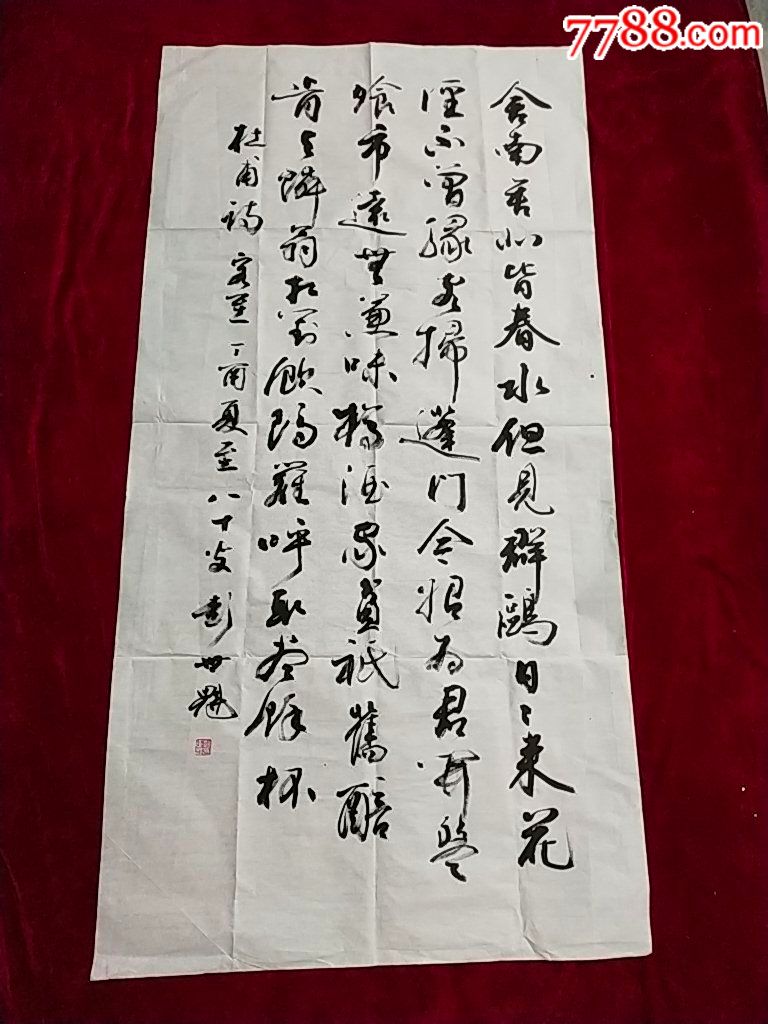 7788.com
舍南舍北皆春水但見群鷗日日来花
徑不曾緣客掃蓬門今始為君開盤
飧市遠無兼味樽酒家貧祇舊醅
肯與鄰翁相對飲隔籬呼取盡餘杯
杜甫詩 客至 丁酉夏至 八十叟 彭世